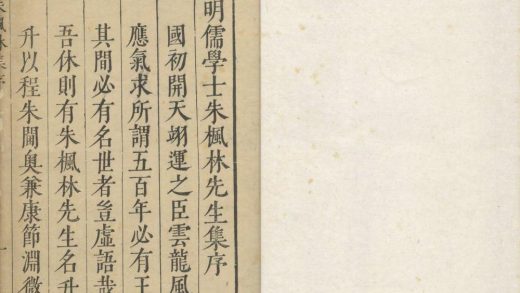 明儒學士朱楓林先生集序
國初開天翊運之臣雲龍風
應氣求所謂五百年必有王
其間必有名世者豈虛語哉
吾休則有朱楓林先生名升
升以程朱閫奧兼康節淵微
朱楓林集序
一